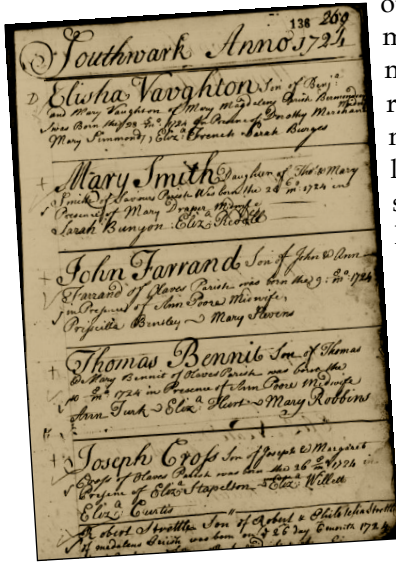 138 269
Southwark Anno 1724
D Elisha Vaughton Son of Benj.ª
and Mary Vaughton of Mary Madalens Parish Bermondsey
was Born the 23 2 mo 1724 In Presence of Dorothy Merchant
Mary Simmonds, Eliz.ª French Sarah Burges
Mary Smith Daughter of Tho.ˢ & Mary
Smith of Saviours Parish Was born the 24 mo 1724 in
Presence of Mary Draper Midwife
Sarah Bunyon Eliz.ª Redall
John Farrand Son of John & Ann
Farrand of Olaves Parish was born the 9 mo 1724
in Presence of Ann Poore Midwife,
Priscilla Brinsley Mary Stevens
Thomas Bennit Son of Thomas
& Mary Bennit of Olaves Parish was born the
mo 1724 in Presence of Ann Poore Midwife
Ann Turk Eliz.ª Hunt Mary Robbins
Joseph Cross Son of Joseph & Margarit
Cross of Olaves Parish was born the 26 mo 1724
Presence of Eliz.ª Stapelson Eliz.ª Willett
Eliz.ª Curtis
Robert Strottle Son of Robert & Philotesia Strottle
of madalens Parish was born on 26 day 1724